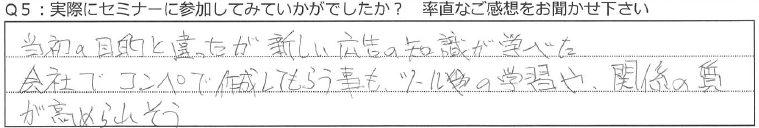 Q5：実際にセミナーに参加してみていかがでしたか？　率直なご感想をお聞かせ下さい
当初の目的と違ったが新しい広告の知識が学べた
会社でコンペで作成してもらう事も、ツール の学習や、関係の質
が高められそう